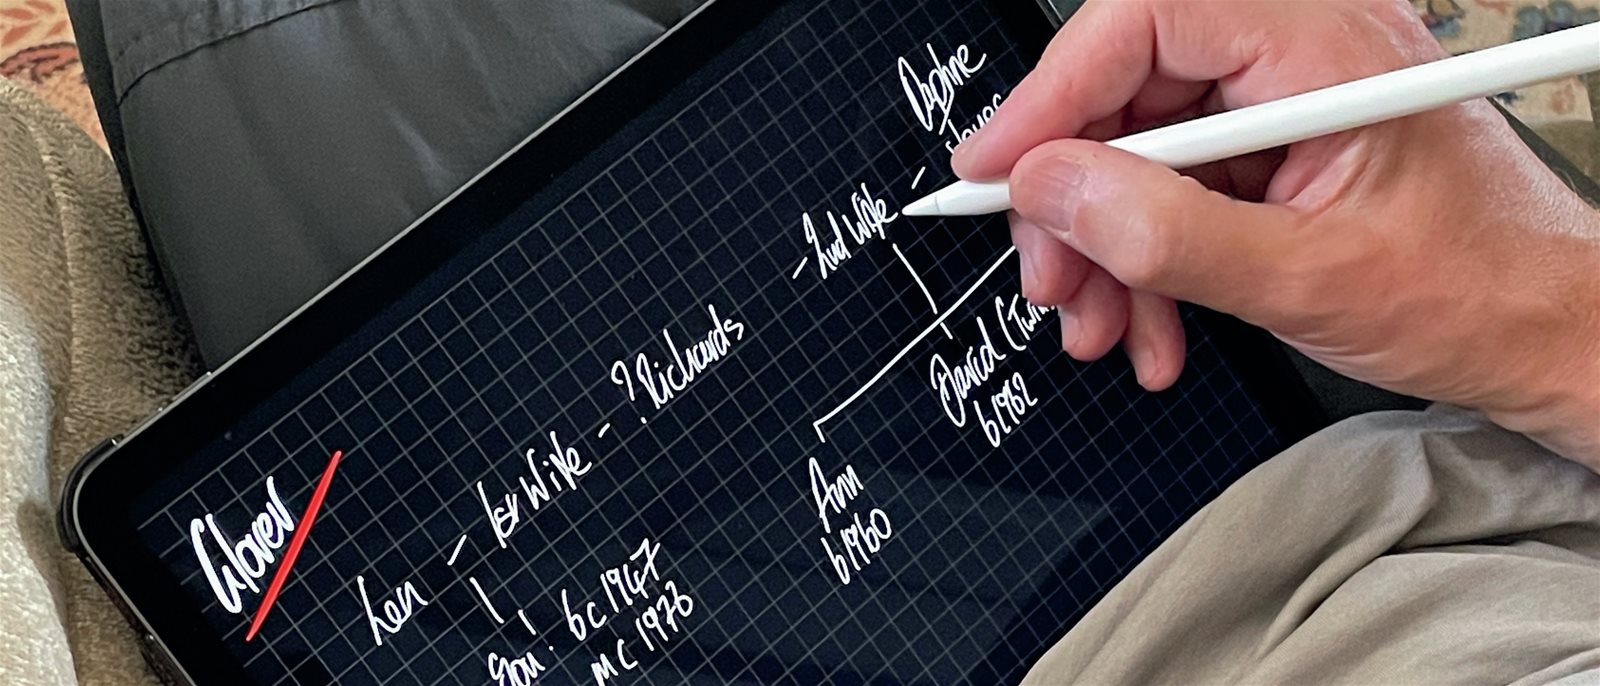 Glover
Len – 1st Wife – ? Richards
– 2nd Wife –
Daphne
Son. bc 1947
mc 1978
Ann
b1960
David (Twin
b1962